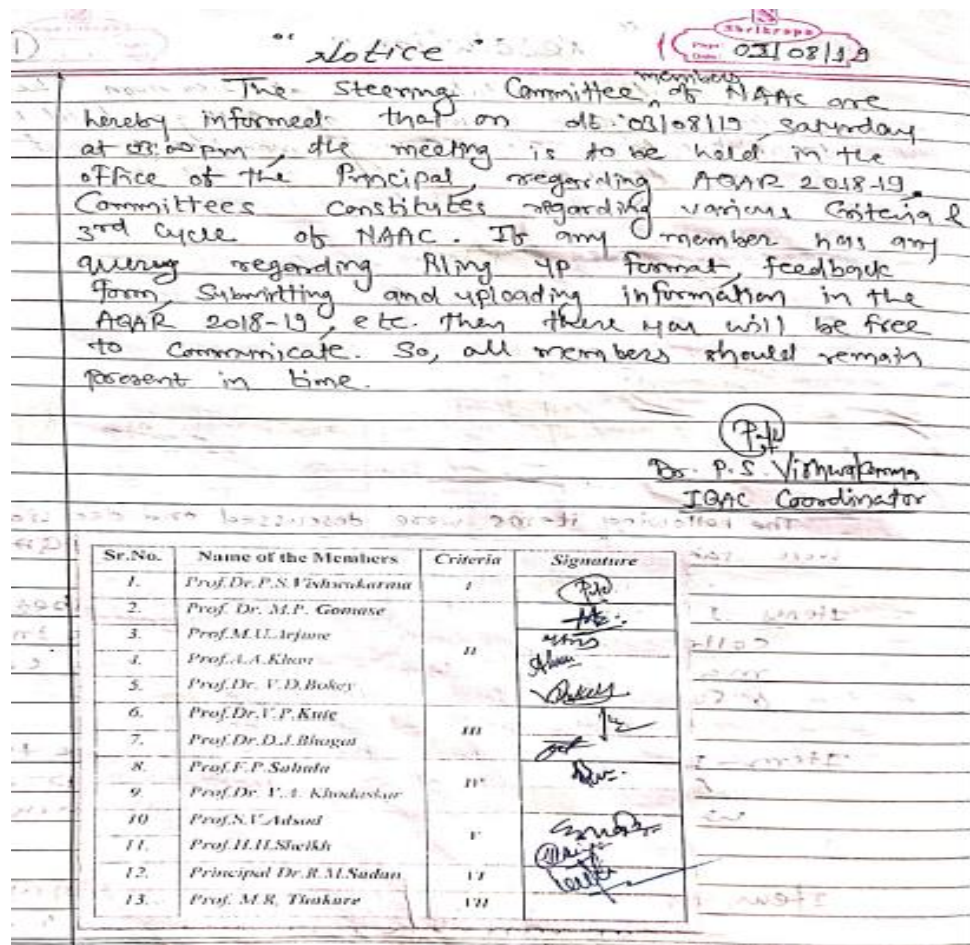 1)
"Notice"
Shrikrupa
Page:
Date: 03/08/19
The Steering Committee members of NAAC are
hereby informed that on dt. 03/08/19 Saturday
at 03:00 pm, the meeting is to be held in the
office of the Principal, regarding AQAR 2018-19.
Committees constitutes regarding various Criteria &
3rd Cycle of NAAC. If any member has any
query regarding filing up format, feedback
form, Submitting and uploading information in the
AQAR 2018-19, etc. then there you will be free
to communicate. So, all members should remain
present in time.
Dr. P. S. Vishwakarma
IQAC Coordinator
Sr.No. Name of the Members Criteria Signature
1. Prof.Dr.P.S.Vishwakarma I
2. Prof. Dr. M.P. Gomase
3. Prof.M.U.Arjune II
4. Prof.A.A.Khan
5. Prof.Dr. V.D.Bokey
6. Prof.Dr.V.P.Kute III
7. Prof.Dr.D.J.Bhagat
8. Prof.F.P.Sabala IV
9. Prof.Dr. V.A. Khodaskar
10 Prof.S.V.Adsud V
11. Prof.H.H.Sheikh
12. Principal Dr.R.M.Sadan VI
13. Prof. M.R. Thakare VII